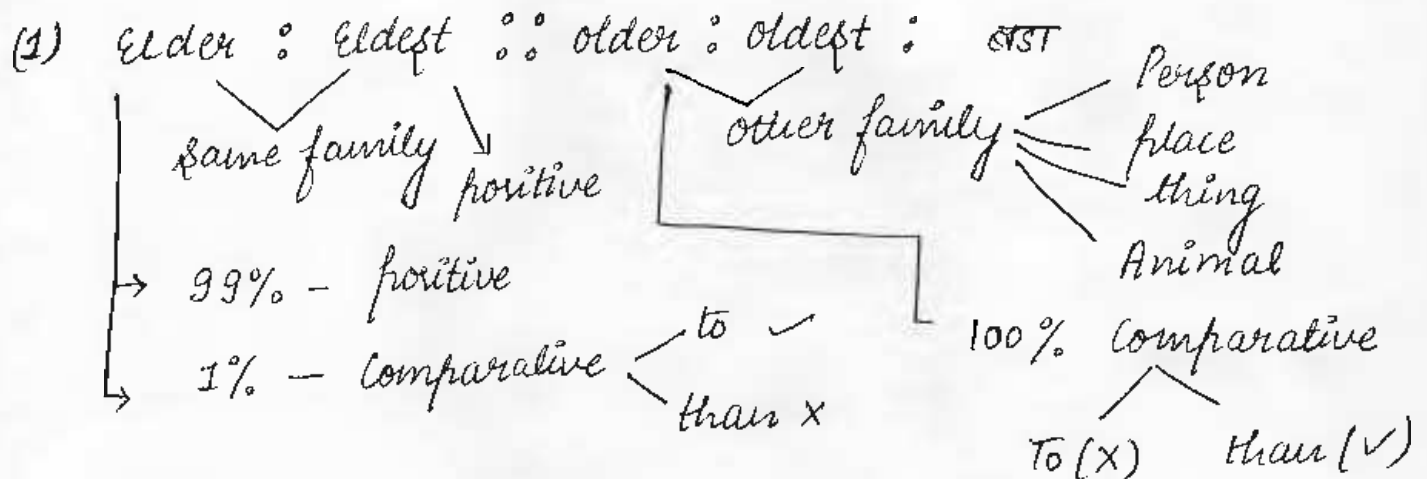 (1) Elder : Eldest :: older : oldest : बडा
same family
positive
other family
Person
place
thing
Animal
99% - positive
1% - Comparative
to ✓
than x
100% Comparative
To (X) than (✓)